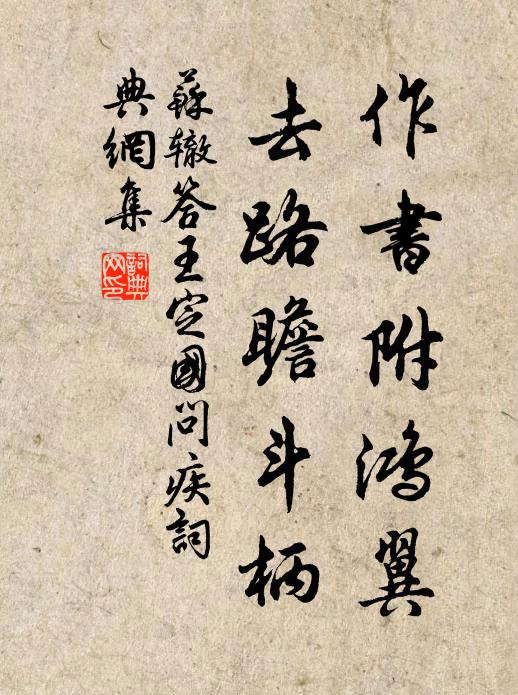 作書附鴻翼
去路瞻斗柄
蘇轍答王定國問疾詞
典網集
詞典网印